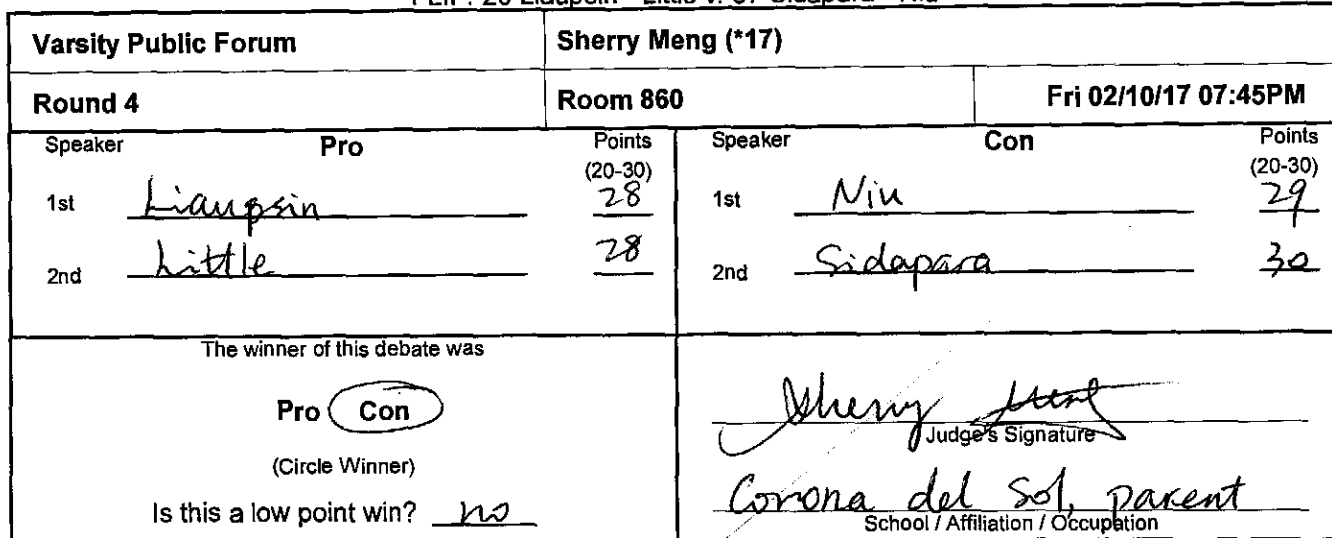 Varsity Public Forum Sherry Meng (*17)
Round 4 Room 860 Fri 02/10/17 07:45PM
Speaker Pro Points Speaker Con Points
(20-30) (20-30)
1st Liaupsin 28 1st Niu 29
2nd Little 28 2nd Sidapara 30
The winner of this debate was
Pro Con
(Circle Winner)
Is this a low point win? no
Sherry Meng
Judge's Signature
Corona del Sol, parent
School / Affiliation / Occupation